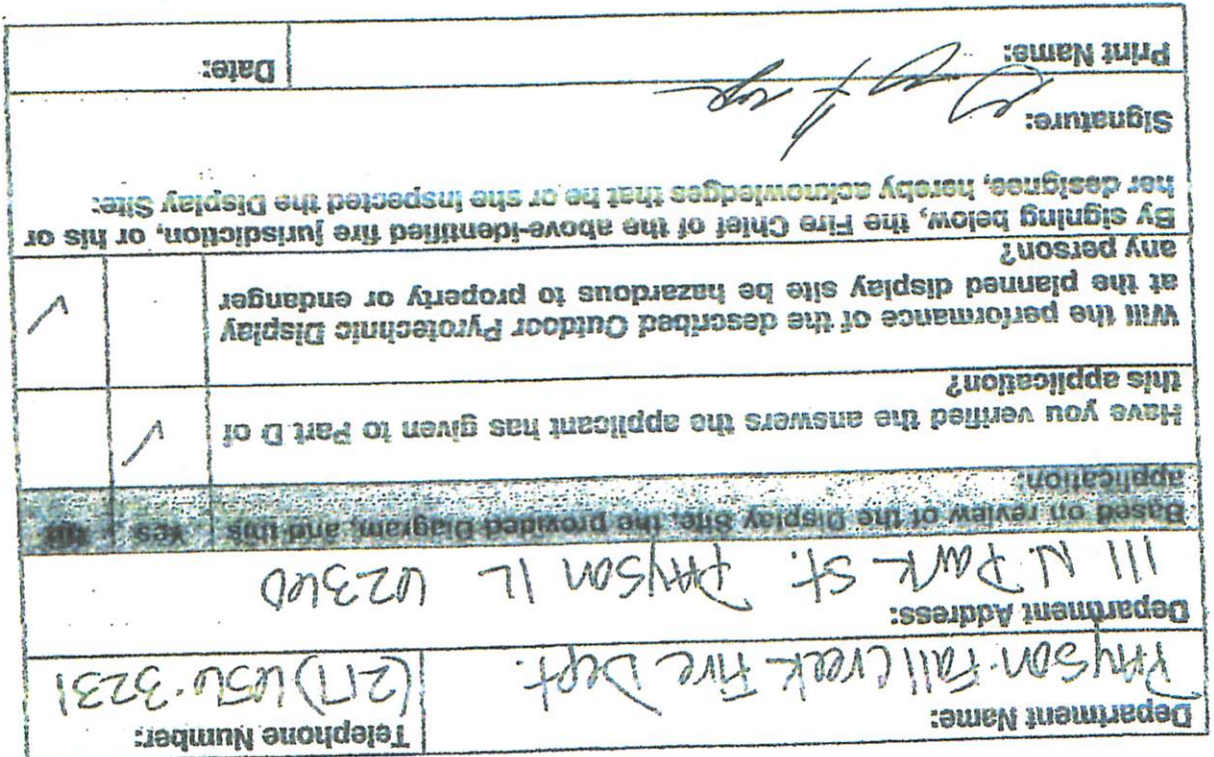 Department Name:
Telephone Number:
Payson-Fall Creek Fire Dept.
(217) 656-3231
Department Address:
111 N. Park St. Payson IL 62360
Based on review of the Display Site, the provided Diagram, and this application:
Yes
No
Have you verified the answers the applicant has given to Part D of
this application?
✓
Will the performance of the described Outdoor Pyrotechnic Display
at the planned display site be hazardous to property or endanger
any person?
✓
By signing below, the Fire Chief of the above-identified fire jurisdiction, or his or
her designee, hereby acknowledges that he or she inspected the Display Site:
Signature:
Print Name:
Date: